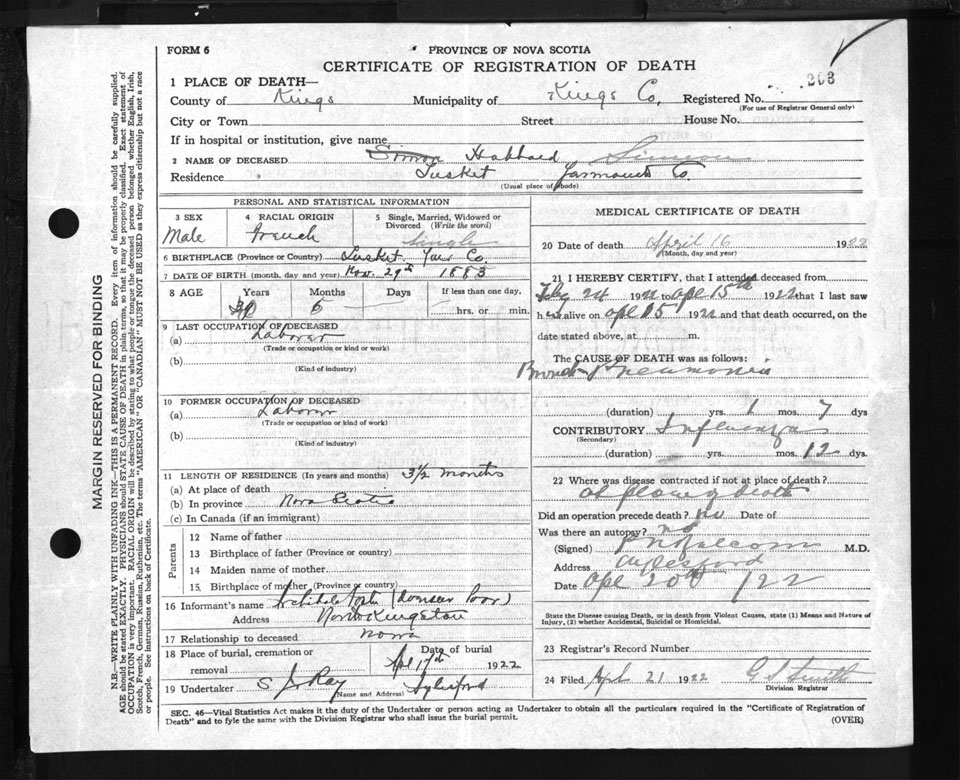 FORM 6
PROVINCE OF NOVA SCOTIA
CERTIFICATE OF REGISTRATION OF DEATH
.308
1 PLACE OF DEATH—
County of Kings Municipality of Kings Co. Registered No.
(For use of Registrar General only)
City or Town Street House No.
If in hospital or institution, give name
2 NAME OF DECEASED Simon Hubbard Simeon
Residence Tusket Yarmouth Co.
(Usual place of abode)
PERSONAL AND STATISTICAL INFORMATION
3 SEX 4 RACIAL ORIGIN 5 Single, Married, Widowed or Divorced (Write the word)
Male French Single
6 BIRTHPLACE (Province or Country) Tusket Yar Co.
7 DATE OF BIRTH (month, day and year) Nov. 29th 1883
8 AGE Years Months Days If less than one day,
6 hrs. or min.
9 LAST OCCUPATION OF DECEASED
(a) Laborer
(Trade or occupation or kind or work)
(b)
(Kind of industry)
10 FORMER OCCUPATION OF DECEASED
(a) Laborer
(Trade or occupation or kind of work)
(b)
(Kind of industry)
11 LENGTH OF RESIDENCE (In years and months) 3½ months
(a) At place of death
(b) In province Nova Scotia
(c) In Canada (if an immigrant)
Parents
12 Name of father
13 Birthplace of father (Province or country)
14 Maiden name of mother
15 Birthplace of mother (Province or country)
16 Informant's name Archibald (Overseer Poor)
Address North Kingston
17 Relationship to deceased None
18 Place of burial, cremation or removal Date of burial
Apl 17th 1922
19 Undertaker S J Ray Aylesford
(Name and Address)
MEDICAL CERTIFICATE OF DEATH
20 Date of death April 16 1922
(Month, day and year)
21 I HEREBY CERTIFY, that I attended deceased from
24 19 to Apl 15th 1922 that I last saw
h alive on Apl 15 1922 and that death occurred, on the
date stated above, at m.
The CAUSE OF DEATH was as follows:
Broncho Pneumonia
(duration) yrs. 1 mos. 7 dys
CONTRIBUTORY Influenza
(Secondary)
(duration) yrs. mos. 12 dys.
22 Where was disease contracted if not at place of death?
At place of death
Did an operation precede death? no Date of
Was there an autopsy? no
(Signed) M.D.
Address Aylesford
Date Apl 20th /22
State the Disease causing Death, or in Death from Violent Causes, state (1) Means and Nature of Injury, (2) whether Accidental, Suicidal or Homicidal.
23 Registrar's Record Number
24 Filed Apl 21 1922 G S Smith
Division Registrar
SEC. 46—Vital Statistics Act makes it the duty of the Undertaker or person acting as Undertaker to obtain all the particulars required in the "Certificate of Registration of
Death" and to fyle the same with the Division Registrar who shall issue the burial permit.
(OVER)
MARGIN RESERVED FOR BINDING
N.B.—WRITE PLAINLY WITH UNFADING INK—THIS IS A PERMANENT RECORD. Every item of information should be carefully supplied.
AGE should be stated EXACTLY. PHYSICIANS should STATE CAUSE OF DEATH in plain terms, so that it may be properly classified. Exact statement of
OCCUPATION is very important. RACIAL ORIGIN will be described by stating to what people or tongue the deceased person belonged whether English, Irish,
Scotch, French, German, Russian, Ruthenian, etc. The terms "AMERICAN" OR "CANADIAN" MUST NOT BE USED as they express citizenship but not a race
or people. See instructions on back of Certificate.